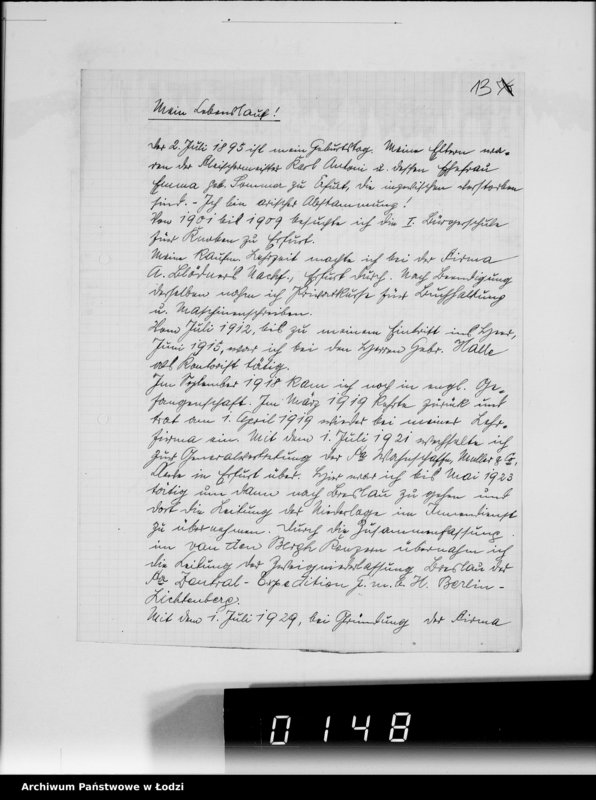 13
Mein Lebenslauf!
Der 2. Juli 1895 ist mein Geburtstag. Meine Eltern wa-
ren der Fleischermeister Karl Antoni u. dessen Ehefrau
Emma geb. Somma zu Erfurt, die inzwischen verstorben
sind. - Ich bin arischer Abstammung!
Von 1901 bis 1909 besuchte ich die I. Bürgerschule
für Knaben zu Erfurt.
Meine kaufm. Lehrzeit machte ich bei der Firma
A. Blödner's Nachf., Erfurt durch. Nach Beendigung
derselben nahm ich Privatkurse für Buchhaltung
u. Maschinenschreiben.
Vom Juli 1912, bis zu meinem Eintritt ins Heer,
Juni 1915, war ich bei den Herren Gebr. Halle
als Kontorist tätig.
Im September 1918 kam ich noch in engl. Ge-
fangenschaft. Im März 1919 kehrte zurück und
trat am 1. April 1919 wieder bei meiner Lehr-
firma ein. Mit dem 1. Juli 1921 wechselte ich
zur Generalvertretung der Fa Wahnschaffe, Muller &
in Erfurt über. Hier war ich bis Mai 1923
tätig um dann nach Breslau zu gehen und
dort die Leitung der Niederlage im Innendienst
zu übernehmen. Durch die Zusammenfassung
im van den Bergh Konzern übernahm ich
die Leitung der Zweigniederlassung Breslau der
Fa Zentral-Expedition G.m.b.H. Berlin-
Lichtenberg.
Mit dem 1. Juli 1929, bei Gründung der Firma
0148
Archiwum Państwowe w Łodzi